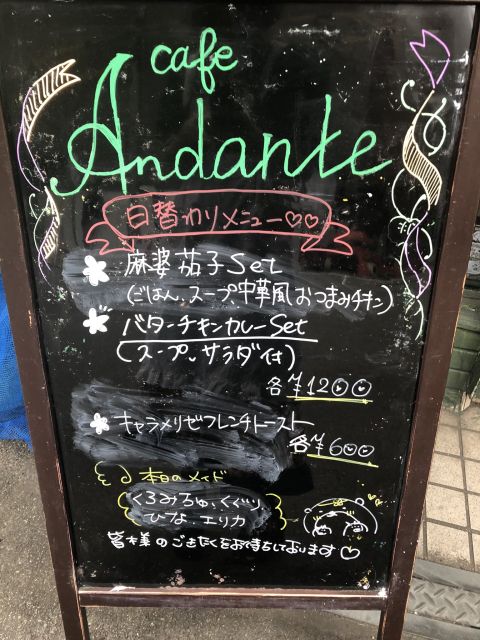 cafe
Andante
日替わりメニュー♡♡
麻婆茄子Set
(ごはん、スープ、中華風おつまみチキン)
バターチキンカレーSet
(スープ、サラダ付)
各¥1200
キャラメリゼフレンチトースト
各¥600
本日のメイド
くろみちゅ、くぐり、
ひな、エリカ
皆様のごきたくをお待ちしております♡